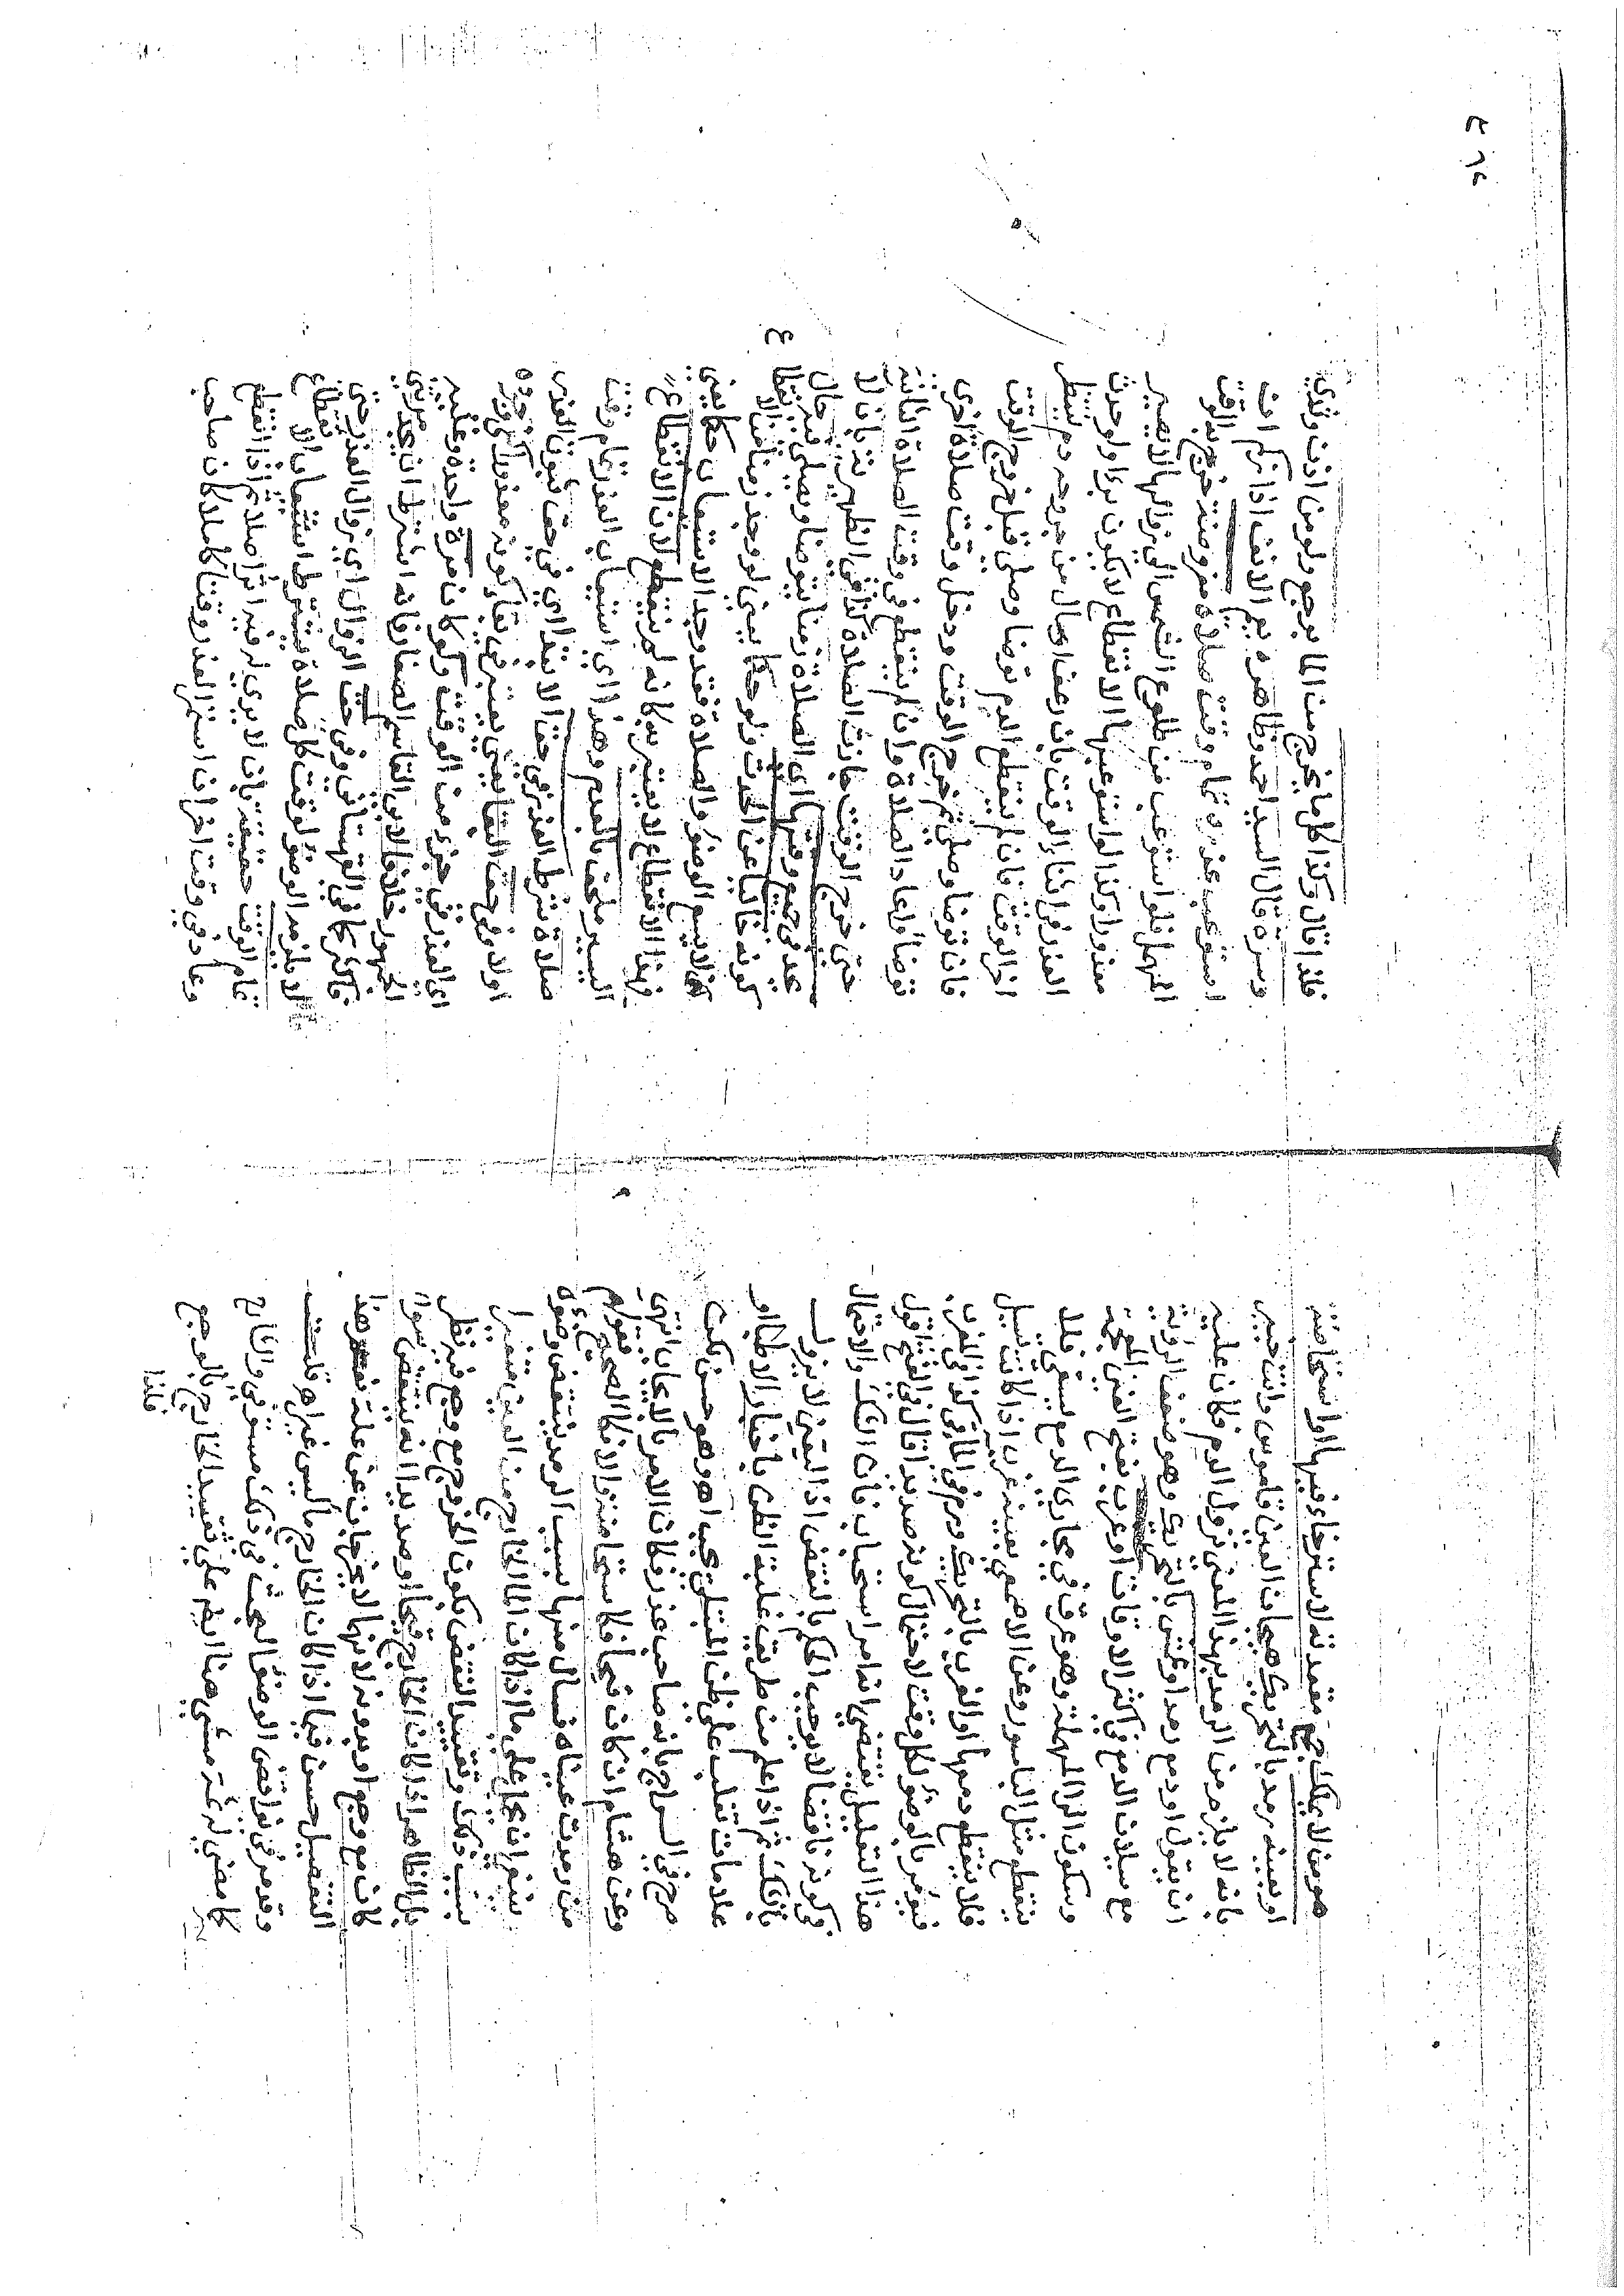 هو من لا يملك بجع مقعدته لاسترخاء فيها او استحاضة
او بعينه رمد بالتحريك هيجان العين قاموس وانت خبير
بانه لا يلزم من الرمد بهذا المعنى نزول الدم فكان عليه
ان يقول او دمع رمد او عمش بالتحريك وهو ضعف الرؤية
مع سيلان الدمع في اكثر الاوقات او غرب بفتح الغين المعجمة
وسكون الراء المهملة وهو عرق في مجاري الدمع يسقى فلا
ينقطع مثل الباسور وعن الاصمعي بعينه غرب اذا كانت تسيل
فلا ينقطع دمعها والغرب بالتحريك ورم في المآقي كذا في المغرب
فيؤمر بالوضوء لكل وقت لاحتمال كونه صديدا قال في الفتح اقول
هذا التعليل يقتضي انه امر استحباب فان الشك والاحتمال
في كونه ناقضا لا يوجب الحكم بالنقض اذ اليقين لا يزول
بالشك نعم اذا علم من طريق غلبة الظن باخبار الاطباء او
علامات تغلب على ظن المبتلى يجب اهـ وهو حسن لكن
صرح في السراج بانه صاحب عذر فكان الامر للايجاب انتهى
وعن هشام ان كان قيحا فكالمستحاضة والا فكالصحيح فقولهم
من رمدت عيناه فسال منها بسبب الرمد ينتقض وضوءه
ينبغي ان يحمل على ما اذا كان الماء الخارج من العين متغيرا
بسبب ذلك وتقييد النقض بكون الخروج مع وجع فيه نظر
بل الظاهر اذا كان الخارج قيحا او صديدا انه ينتقض سواء
كان مع وجع او بدونه لانهما لا يخرجان عن علة نعم هذا
التفصيل حسن فيما اذا كان الخارج ماء ليس غير اهـ قلت
وقد مر في نواقض الوضوء البحث في ذلك مستوفى والشارح
كما مضى مشى هنا ايضا على تقييد الخارج بالوجع
فلذا
فلذا قال وكذا كل ما يخرج من الماء بوجع ولو من اذن وثدي
وسرة قال السيد احمد وظاهره يعم الانف اذا زكم ان
استوعب عذره تمام وقت صلاة مفروضة خرج به الوقت
المهمل فلو استوعب من طلوع الشمس الى زوالها لا يصير
معذورا وكذا لو استوعبها الانقطاع لا يكون برءا ولو حدث
العذر في اثناء الوقت بان رعف او سال من جرحه دم ينتظر
اخر الوقت فان لم ينقطع الدم توضا وصلى قبل خروج الوقت
فان توضا وصلى ثم خرج الوقت ودخل وقت صلاة اخرى
توضا واعاد الصلاة وان لم ينقطع في وقت الصلاة الثانية
حتى خرج الوقت جازت الصلاة كذا في الظهيرية بان لا
يجد في جميع وقتها اي الصلاة زمنا يتوضا ويصلي فيه حال
كونه خاليا عن الحدث ولو حكما يعني لو وجد زمنا من الانقطاع
لا يسع الوضوء والصلاة فقد وجد الاستيعاب حكما يعني
فهذا الانقطاع لا يعتبر وكانه لم ينقطع لان الانقطاع
اليسير ملحق بالعدم وهذا اي استيعاب العذر تمام وقت
صلاة شرط العذر في حق الابتداء اي في حق ثبوت العذر
اولا وفي حق البقاء يعني يعتبر في بقاء كونه معذورا كفى وجوده
اي العذر في جزء من الوقت ولو كان مرة واحدة وعليه
الجمهور خلافا لابي القاسم الصفار فانه اشترط ان يجد مرتين
فاكثر كما في القهستاني وفي حق الزوال اي زوال العذر حتى
لا يلزمه الوضوء لوقت كل صلاة يشترط استيعاب الانقطاع
تمام الوقت حقيقة بان لا يرى فيه اثرا اصلا ثم اذا انقطع
وعاد في وقت اخر ان استمر العذر وقتا كاملا كان صاحب